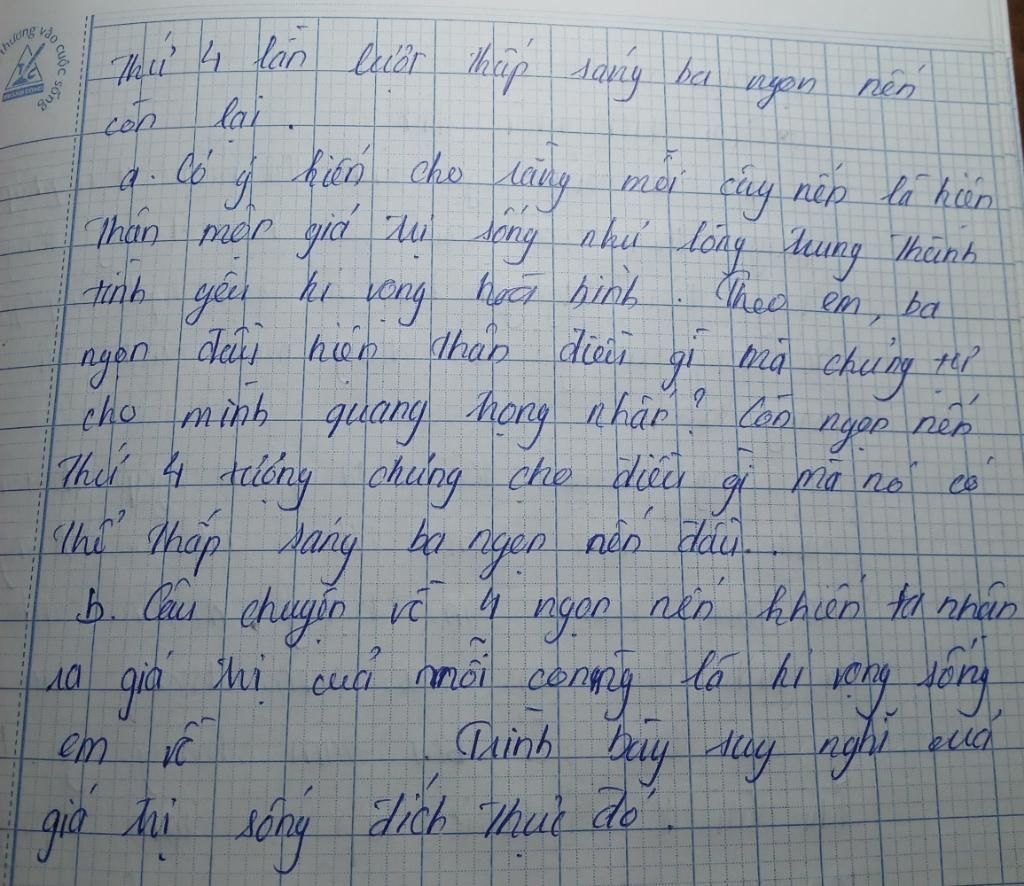 hương vào cuộc sống
Thứ 4 lần lượt thắp sáng ba ngọn nến
còn lại.
a. Có ý kiến cho rằng mỗi cây nến là hiện
thân một giá trị sống như lòng trung thành
tình yêu hi vọng hoà bình. Theo em, ba
ngọn đầu hiện thân điều gì mà chúng tự
cho mình quang trọng nhất? Còn ngọn nến
thứ 4 tượng chưng cho điều gì mà nó có
thể thắp sáng ba ngọn nến đầu.
b. Câu chuyện về 4 ngọn nến khiến ta nhận
ra giá trị của mỗi con ng là hi vọng sống
em về . Trình bày suy nghĩ của
giá trị sống đích thực đó.